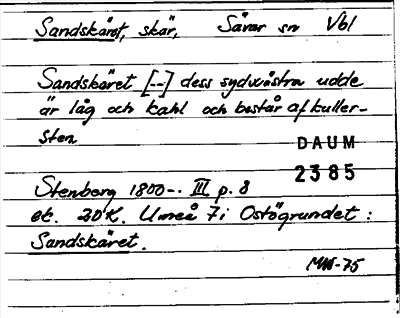 Sandskäret, skär, Sävar sn Vbl
Sandskäret [--] dess sydvästra udde
är låg och kahl och består af kuller-
sten.
DAUM
2385
Stenberg 1800-. III p. 8
ek. 20K. Umeå 7i Ostögrundet :
Sandskäret.
MW-75